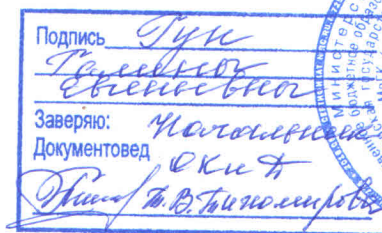 Подпись Гун
Галины
Евгеньевны
Заверяю: Начальник
Документовед ОКиД
Т.В. Тихомирова